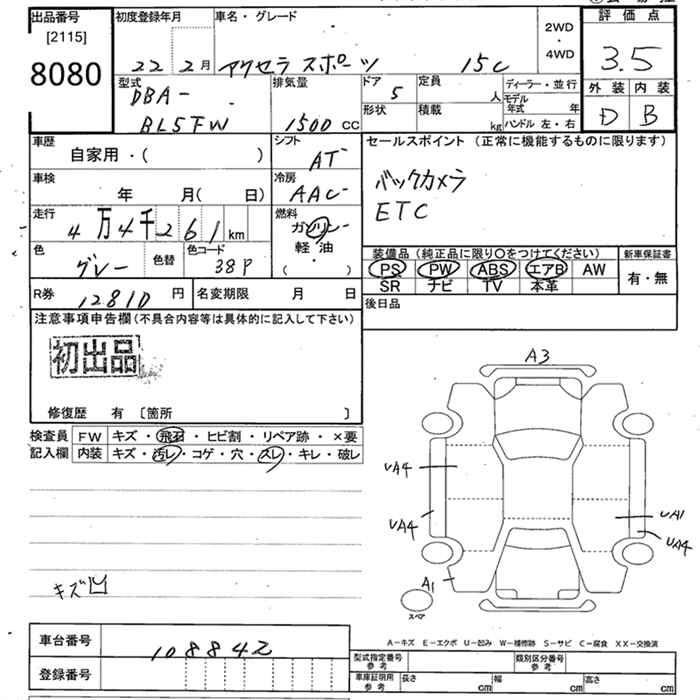 出品番号 [2115] 8080
初度登録年月 22 2月
車名・グレード アクセラ スポーツ 15C
2WD・4WD
評価点 3.5
外装 内装
D B
型式 DBA- BL5FW
排気量 1500 CC
ドア 5
形状
定員 人
積載 kg
ディーラー・並行
モデル年式 年
ハンドル 左・右
車歴 自家用・( )
シフト AT
車検 年 月( 日)
冷房 AAC
走行 4万4千261km
燃料 ガソリン 軽油 ( ・ )
色 グレー 色替
色コード 38P
R券 12810 円
名変期限 月 日
セールスポイント (正常に機能するものに限ります)
バックカメラ
ETC
装備品(純正品に限り○をつけてください)
PS PW ABS エアB AW
SR ナビ TV 本革
新車保証書 有・無
後日品
注意事項申告欄(不具合内容等は具体的に記入して下さい)
初出品
修復歴 有 〔箇所 〕
検査員記入欄
FW キズ・飛石・ヒビ割・リペア跡・×要
内装 キズ・汚レ・コゲ・穴・スレ・キレ・破レ
キズ凹
A3
UA4
UA4
UA1
UA4
A1
スペア
車台番号 108842
登録番号
A-キズ E-エクボ U-凹み W-補修跡 S-サビ C-腐食 XX-交換済
型式指定番号 参考
類別区分番号 参考
車庫証明用 参考
長さ cm
幅 cm
高さ cm